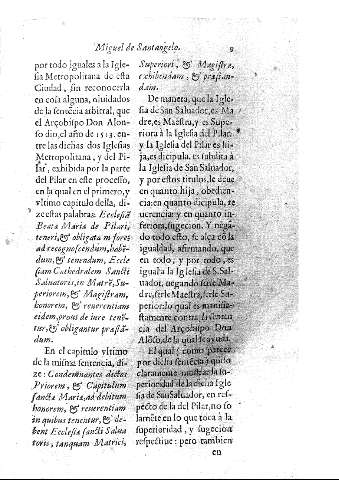 Miguel de Santangelo. 9
por todo iguales a la Igle-
sia Metropolitana de esta
Ciudad, sin reconocerla
en cosa alguna, oluidados
de la sentēcia arbitral, que
el Arçobispo Don Alon-
so dio, el año de 1513. en-
tre las dichas dos Iglesias
Metropolitana, y del Pi-
lar, exhibida por la parte
del Pilar en este processo,
en la qual en el primero, y
vltimo capitulo della, di-
ze estas palabras: Ecclesiā
Beata Maria de Pilari,
teneri, & obligatā m fores
ad recognoscendum, habē-
dum, & tenendum, Eccle
siam Cathedralem Sancti
Saluatoris, in Matrē, Su-
periorem, & Magistram,
honorem, & reuerentiam
eidem, prous de iure tenē-
tur, & obligantur prastā-
dum.
En el capitulo vltimo
de la misma sentencia, di-
ze: Condemnantes dictos
Priorem, & Capitulum
sancta Maria, ad debitum
honorem, & reuerentiam
in quibus tenentur, & de-
bent Ecclesia sancti Salua
toris, tanquam Matrici,
Superiori, & Magistra,
exhibendam, & prastan-
dam.
De manera, que la Igle-
sia de San Saluador, es Ma
dre, es Maestra, y es Supe-
riora à la Iglesia del Pilar.
y la Iglesia del Pilar es hi-
ja, es dicipula, es subdita à
la Iglesia de San Saluador,
y por estos titulos, le deue
en quanto hija, obedien-
cia; en quanto dicipula, re
uerencia; y en quanto in-
feriora, sugecion. Y negā-
do todo esto, se alça cō la
igualdad, afirmando, que
en todo, y por todo, es
igual a la Iglesia de S. Sal-
uador, negando serle Ma-
dre, serle Maestra, serle Su-
perior: lo qual es manifie-
stamente contra la sētencia
del Arçobispo Don
Alōso, de la qual se ayuda.
El qual (como parece
por dicha sentēcia) quiso
claramente mostrar la su-
perioridad de la dicha Igle
sia de San Saluador, en res-
pecto de la del Pilar, no so
lamēte en lo que toca à la
superioridad, y sugecion
respectiue: pero tambien
en